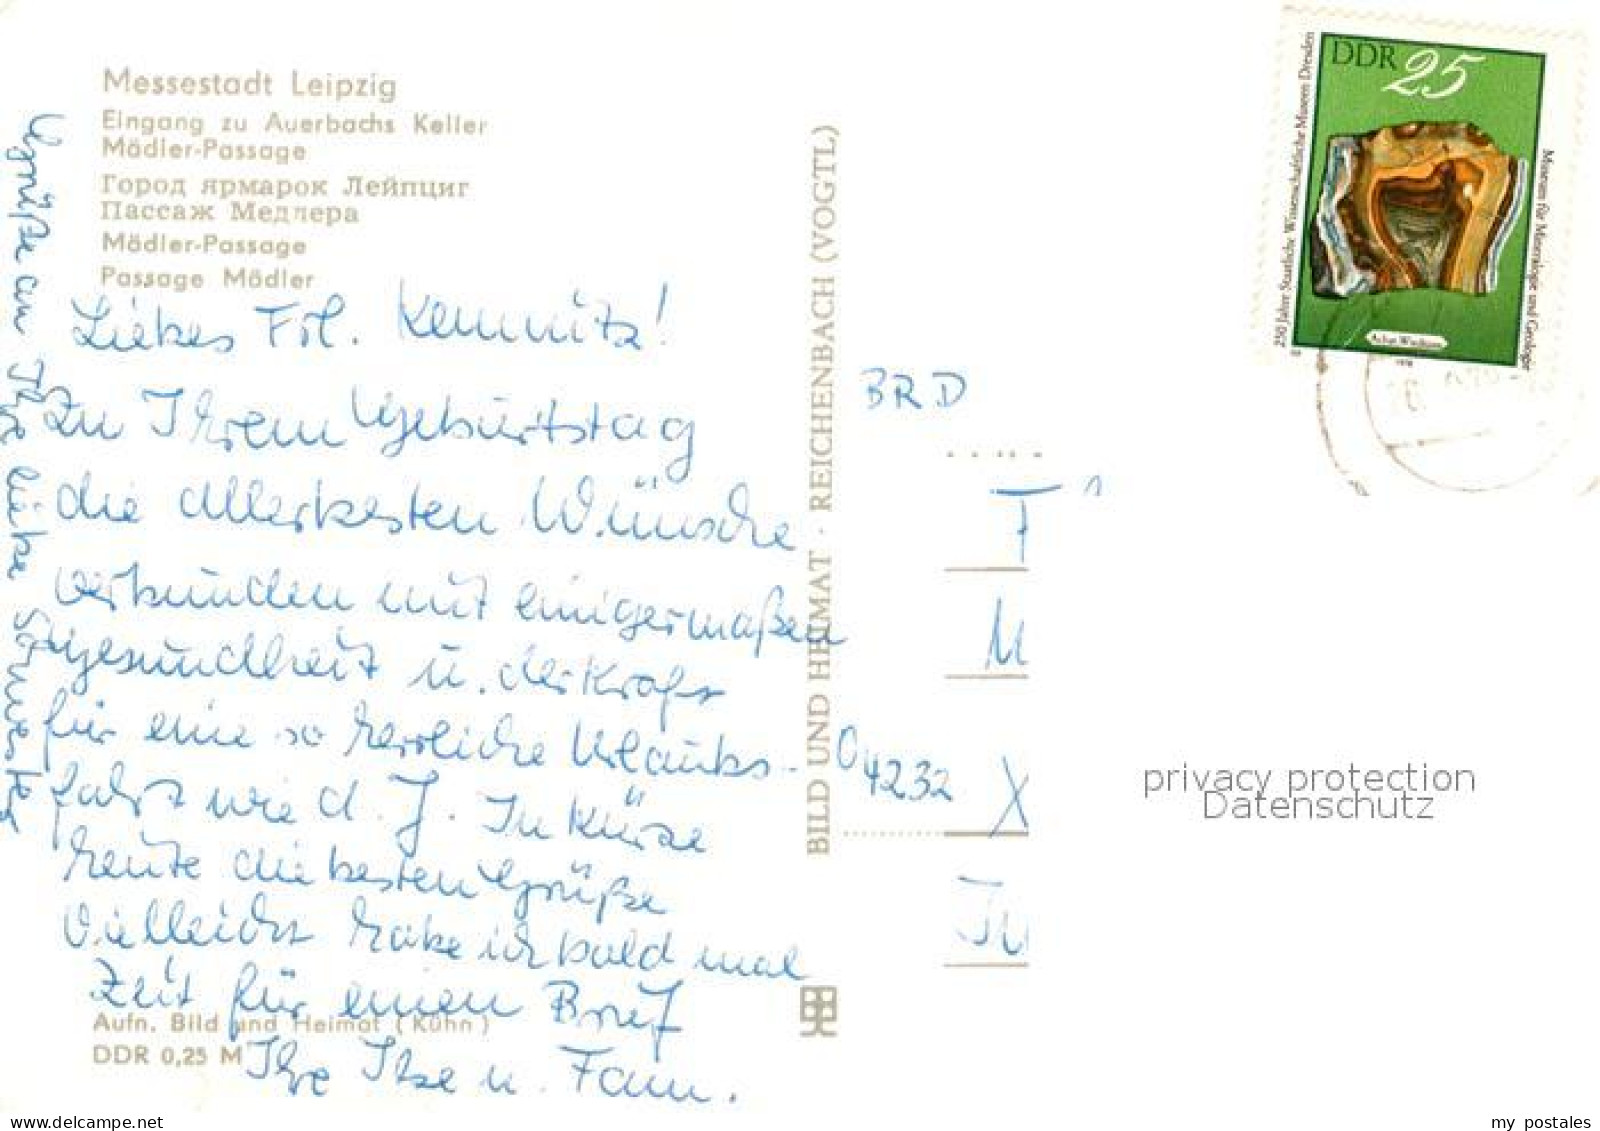 Messestadt Leipzig
Eingang zu Auerbachs Keller
Mädler-Passage
Город ярмарок Лейпциг
Пассаж Медлера
Mädler-Passage
Passage Mädler
Liebes Frl. Kemnitz!
Zu Ihrem Geburtstag
die allerbesten Wünsche
verbunden mit einigermaßen
Gesundheit u. der Kraft
für eine so herrliche Urlaubs-
fahrt wie d. J. In Kürze
heute die besten Grüße
Vielleicht habe ich bald mal
Zeit für einen Brief
Ihre Ilse u. Fam.
Grüße an Ihre liebe Schwester
Aufn. Bild und Heimat (Kühn)
DDR 0,25 M
BILD UND HEIMAT · REICHENBACH (VOGTL)
BRD
04232
privacy protection
Datenschutz
DDR 25
250 Jahre Staatliche Wissenschaftliche Museen Dresden
Museum für Mineralogie und Geologie
Achat Wiederau
1978
delcampe.net
my_postales